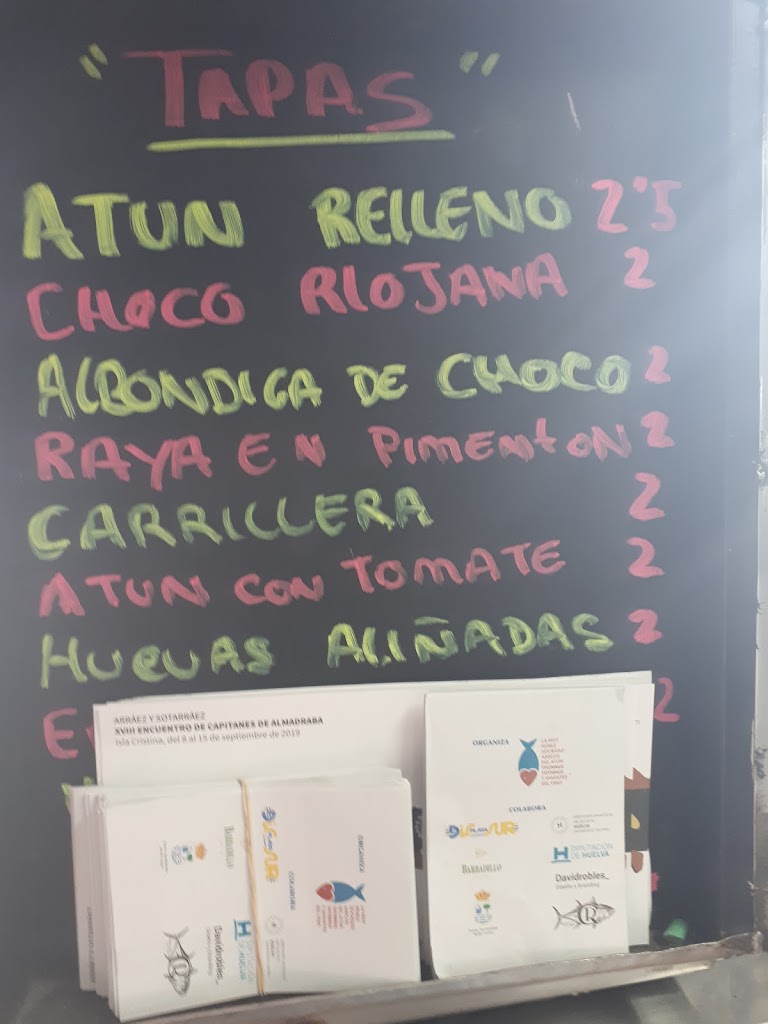 "TAPAS"
ATUN RELLENO 2'5
CHOCO RIOJANA 2
ALBONDIGA DE CHOCO 2
RAYA EN PIMENTON 2
CARRILLERA 2
ATUN CON TOMATE 2
HUEVAS ALIÑADAS 2
2
ARRÁEZ Y SOTARRÁEZ
XVIII ENCUENTRO DE CAPITANES DE ALMADRABA
Isla Cristina, del 8 al 15 de septiembre de 2019
ORGANIZA
COLABORA
PLAYA
BARBADILLO
DIPUTACIÓN
DE HUELVA
Davidrobles_
Diseño y Branding
ORGANIZA
COLABORA
BARBADILLO
Davidrobles_